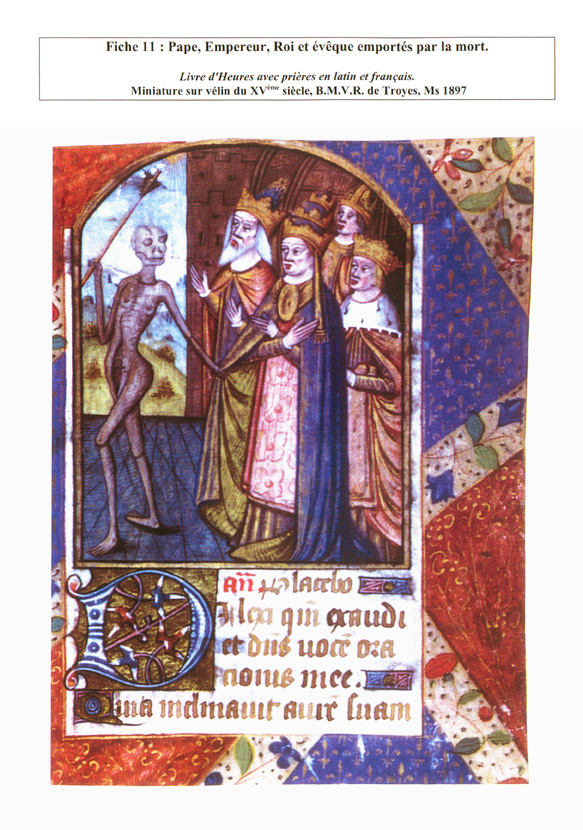 Fiche 11 : Pape, Empereur, Roi et évêque emportés par la mort.
Livre d'Heures avec prières en latin et français.
Miniature sur vélin du XVème siècle, B.M.V.R. de Troyes, Ms 1897
añ placebo
Dilexi qm̃ exaudi
et dñs vocẽ ora
cionis mee.
Quia inclinauit aurẽ suam